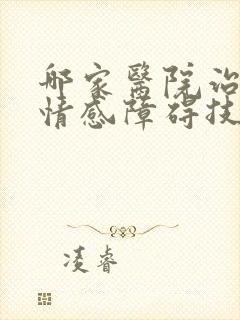 哪家醫院治
情感障碍技
凌睿